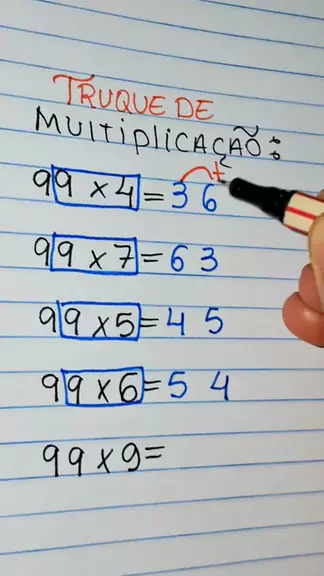 TRUQUE DE
MULTIPLICAÇÃO:
99 x 4 = 3 6
99 x 7 = 6 3
99 x 5 = 4 5
99 x 6 = 5 4
99 x 9 =